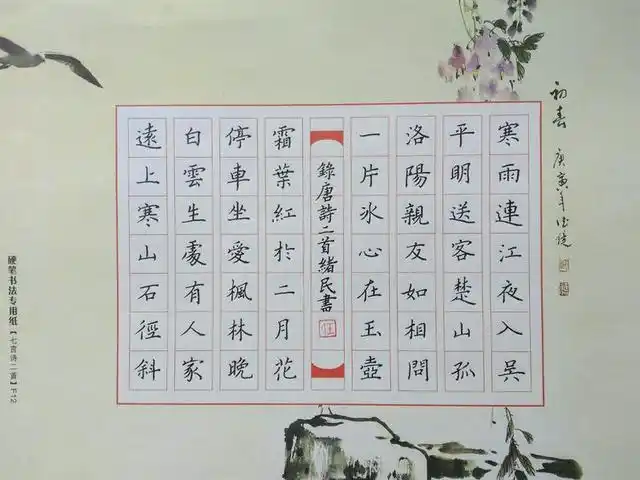 初春
庚寅年
寒雨連江夜入吳
平明送客楚山孤
洛陽親友如相問
一片氷心在玉壺
遠上寒山石徑斜
白雲生處有人家
停車坐愛楓林晚
霜葉紅於二月花
錄唐詩二首緒民書
硬笔书法专用纸【七言诗二首】F12